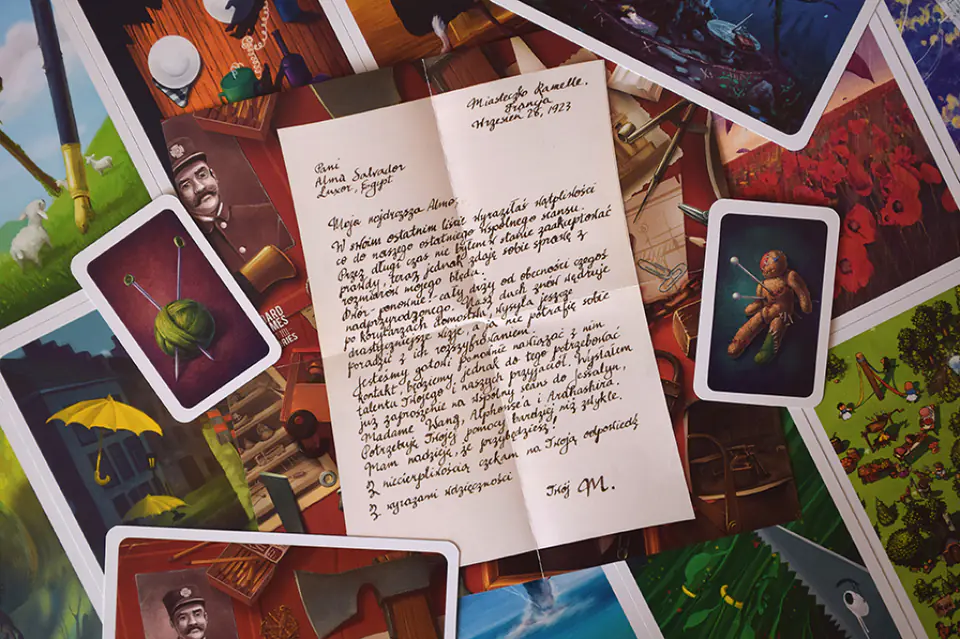 Miasteczko Kamelle,
Francja
Wrzesień 26, 1923
Pani
Alma Salvador
Luxor, Egypt
Moja najdroższa Almo,
W swoim ostatnim liście wyraziłaś wątpliwości
co do naszego ostatniego wspólnego seansu.
Przez długi czas nie byłem w stanie zaakceptować
prawdy, teraz jednak zdaję sobie sprawę z
rozmiarów mojego błędu.
Dwór ponownie cały drży od obecności czegoś
nadprzyrodzonego. Nasz duch znów wędruje
po korytarzach domostwa, wysyła jeszcze
drastyczniejsze wizje, a ja nie potrafię sobie
poradzić z ich rozszyfrowaniem.
Jesteśmy gotowi ponownie nawiązać z nim
kontakt, będziemy jednak do tego potrzebować
talentu Twojego i naszych przyjaciół. Wysłałem
już zaproszenie na wspólny seans do Jessalyn,
Madame Wang, Alphonse'a i Ardhashira.
Potrzebuję Twojej pomocy bardziej niż zwykle.
Mam nadzieję, że przybędziesz!
Z niecierpliwością czekam na Twoją odpowiedź
Z wyrazami wdzięczności
Twój M.